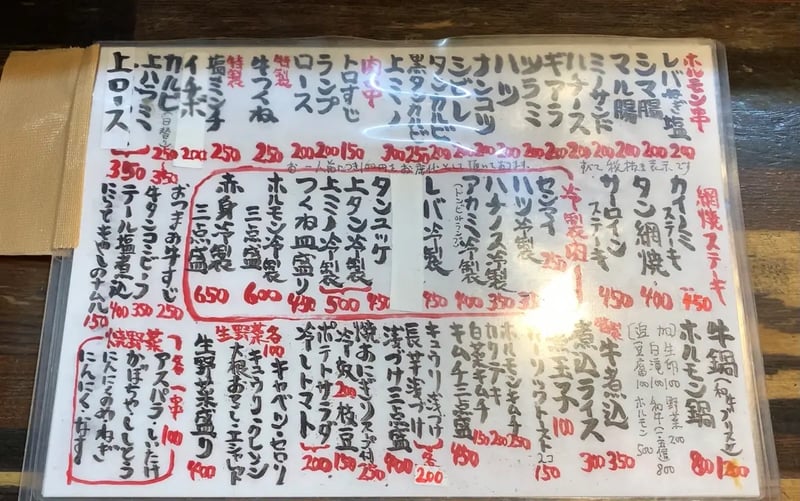 ホルモン串
レバねぎ塩 250
シマ腸 200
マル腸 200
ミノサンド 200
ハチノス 200
ギアラ 200
ツラミ 200
ハツ 200
ナンコツ 200
シビレ 200
タンカルビ 200
黒タンカルビ 250
上ミノ 300
肉串
トロすじ 150
ランプ 200
ロース 200
特製
牛つくね 250
特製
塩ミンチ 250
イチボ 200
カルビ(日替り) 250
上ハラミ 350
上ロース 350
すべて税抜き表示です
網焼ステーキ
カイノミステーキ 450
タン網焼 400
サーロインステーキ 450
冷製肉
センマイ 250
ハツ冷製 350
ハチノス冷製 350
アカミ冷製 400
レバ冷製 450
タンユッケ 450
上タン冷製 500
上ミノ冷製
つくね皿盛り 450
ホルモン冷製
三点盛 600
赤身冷製
三点盛 650
おつまみ牛すじ 250
牛タンコンビーフ 350
テール塩煮込 400
にらともやしのナムル 150
牛鍋(和牛プリスケ) 1200
ホルモン鍋 800
生卵100
野菜200
白滝100
豆腐100
ホルモン500
牛煮込 350
煮込ライス 300
煮玉子 100
ガーリックトースト2コ 150
ホルモンキムチ 250
カクテキ 200
白菜キムチ 150
キムチ三点盛 450
キュウリ浅づけ
長芋浅づけ
各200
浅づけ三点盛 400
焼おにぎりスープ付 250
枝豆 150
冷奴 200
ポテトサラダ
冷しトマト 200
生野菜 各100
キャベツ・セロリ
キュウリ・クレソン
大根おろし・エシャレット
生野菜盛り 400
焼野菜 各一串 100
アスパラ・しいたけ
かぼちゃ・ししとう
にんにくのめ・ねぎ
にんにく・なす